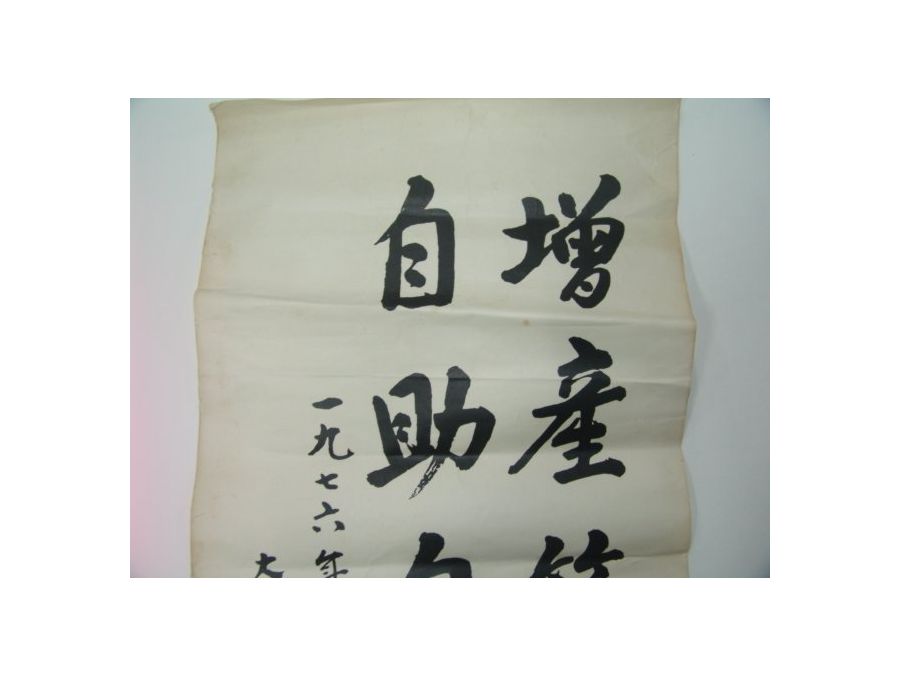 增產
自助
一九七六年
大